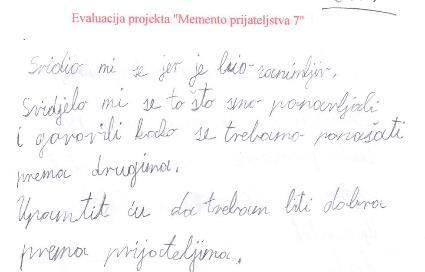 Evaluacija projekta "Memento prijateljstva 7"
Svidio mi se jer je bio zanimljiv.
Svidjelo mi se to što smo ponavljali
i govorili kako se trebamo ponašati
prema drugima.
Upamtit ću da trebam biti dobra
prema prijateljima.